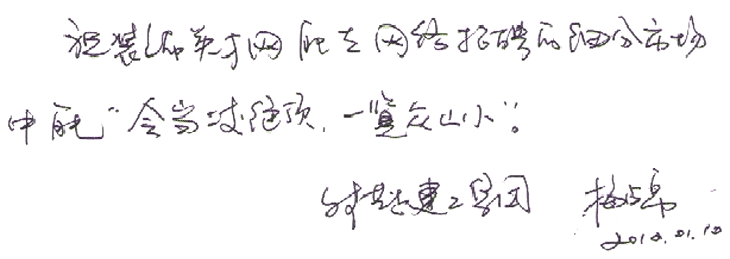 祝装饰英才网能在网络招聘的细分市场
中能“会当凌绝顶，一览众山小”。
建工集团 梅
2010.01.10